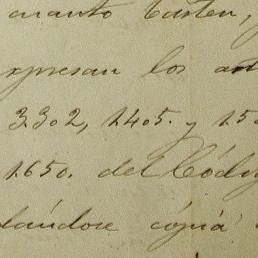 cuanto basten,
expresan los art
3.302, 1.405. y 15
1.650. del Códig
dándose cópia